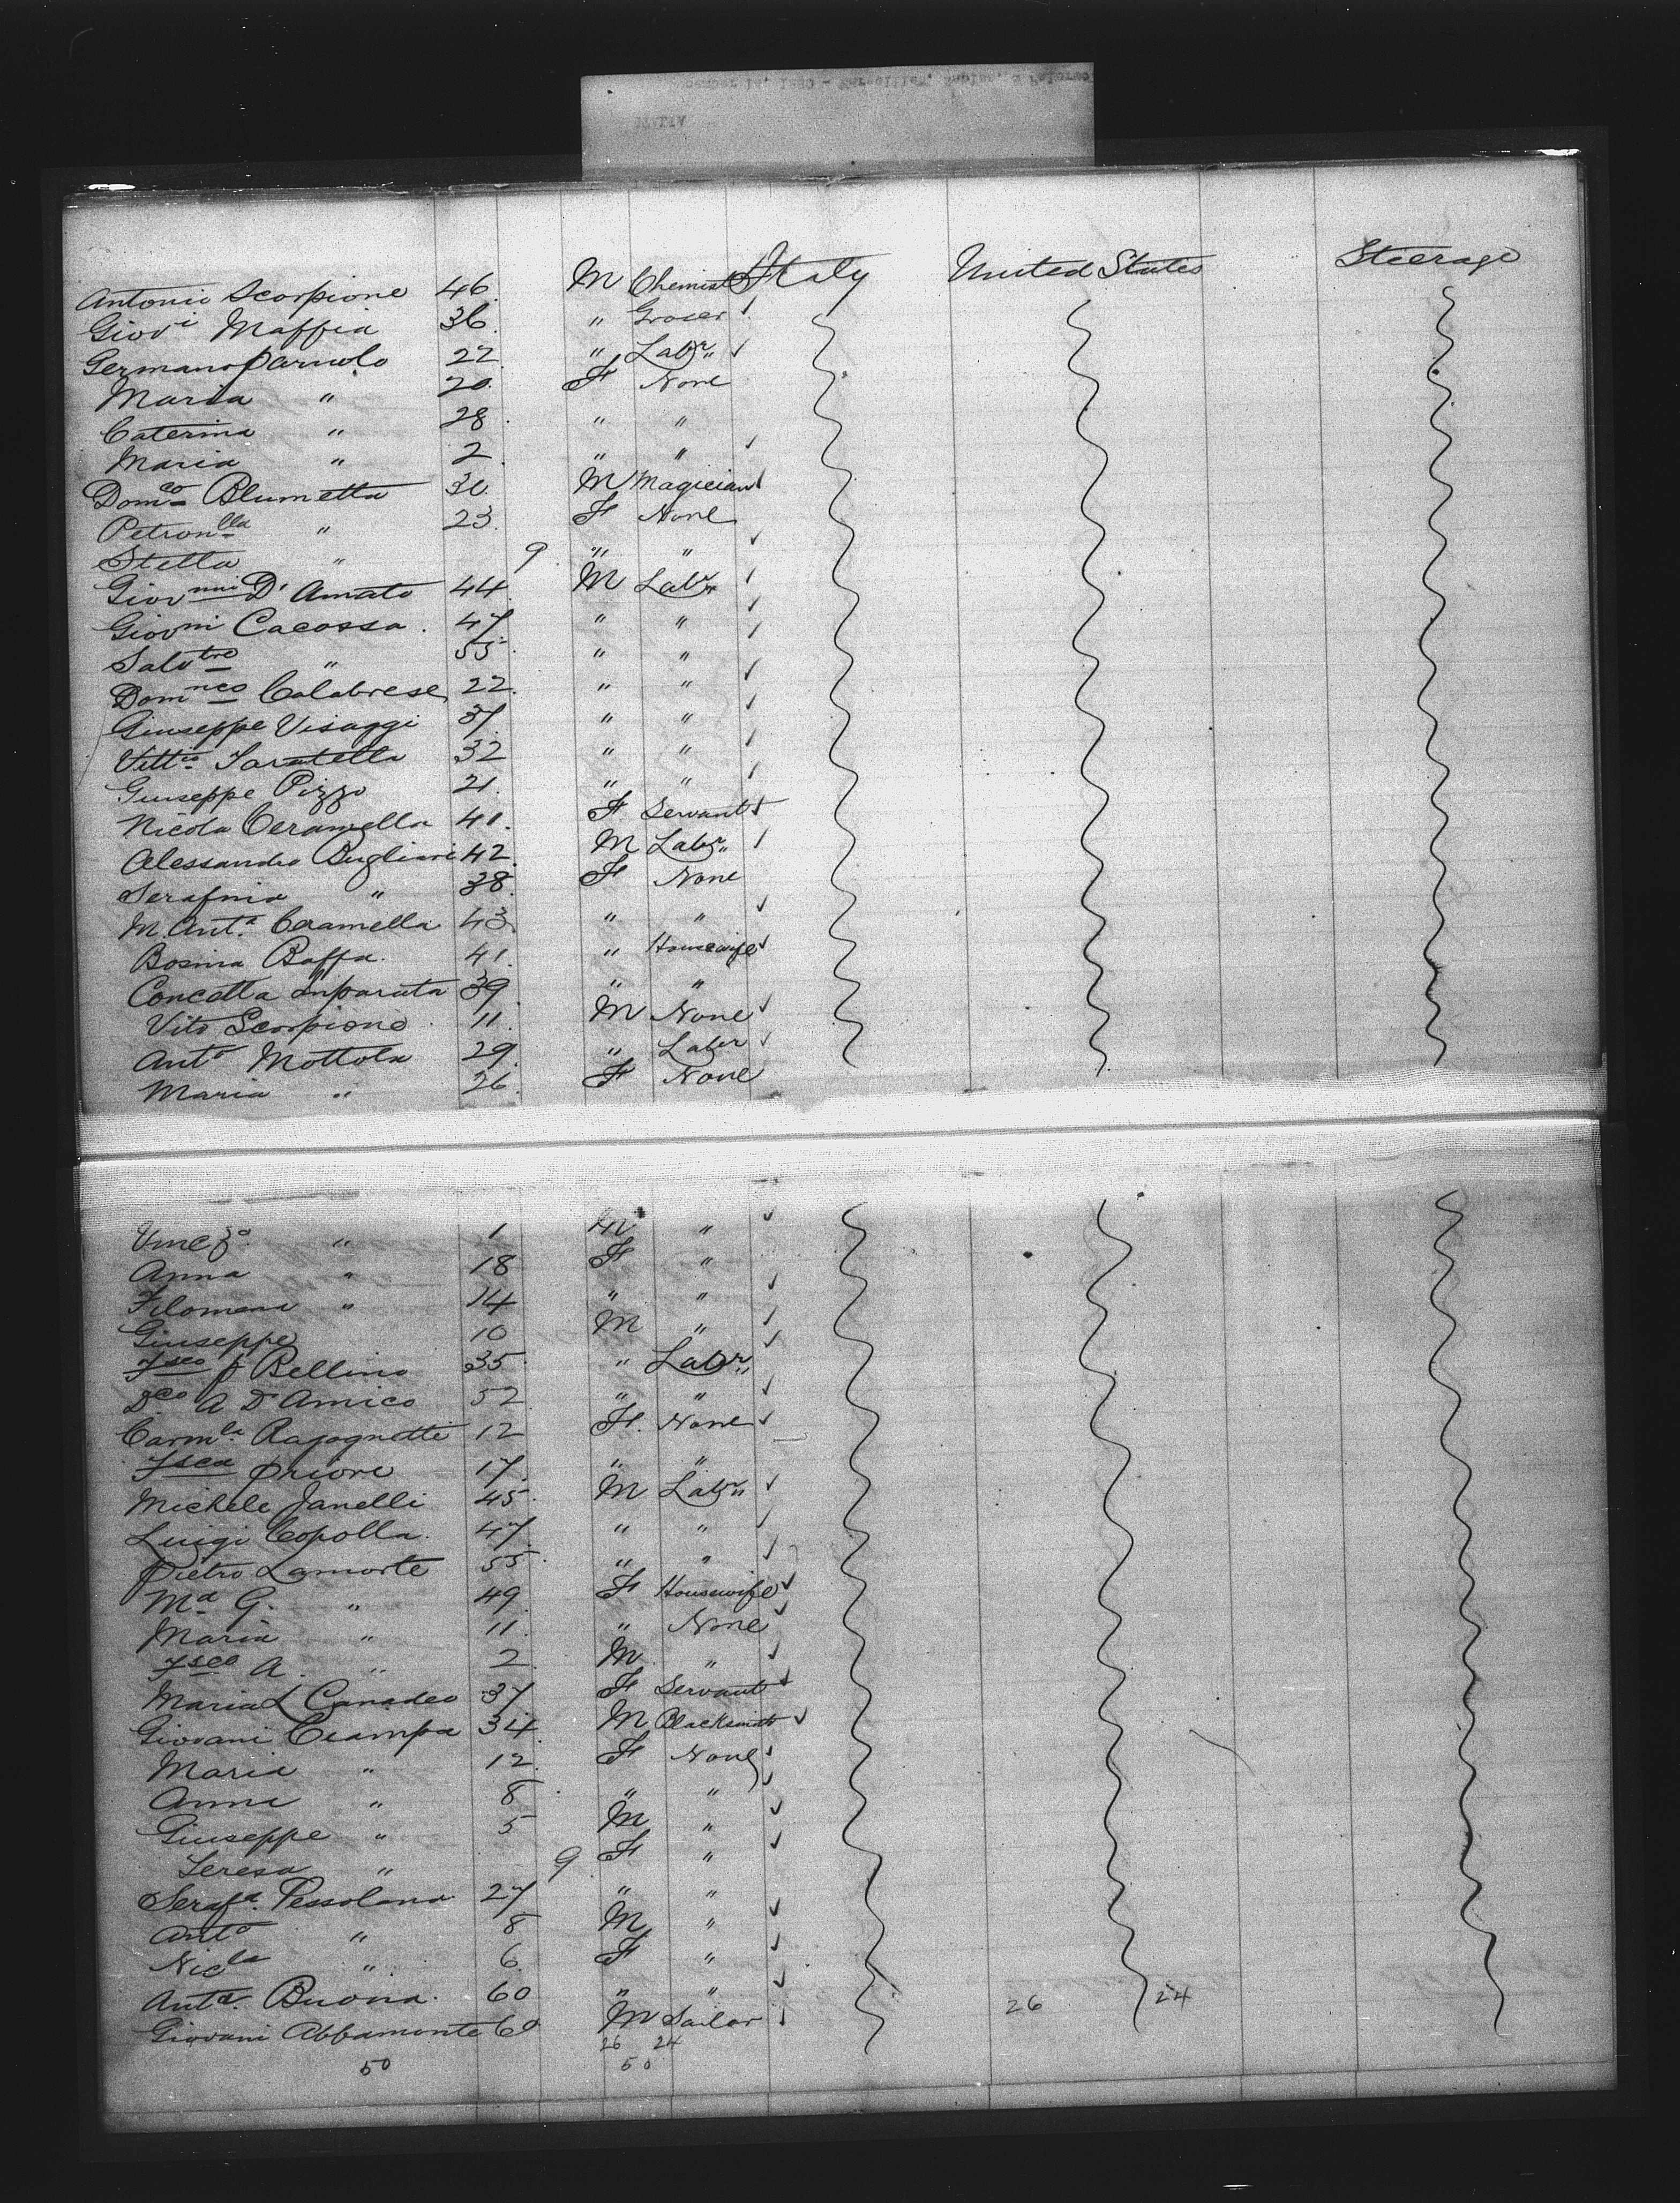 Antonio Scorpione 46 M Chemist Italy United States Steerage
Giovi Maffia 36 " Grocer
Germano Parnolo 22 " Labr "
Maria " 20 F None
Caterina " 28 " "
Maria " 2 " "
Domco Blumetta 30 M Magician
Petronlla " 23 F None
Stella " 9 " "
Giovnni D'Amato 44 M Labr "
Giovni Cacossa 47 " "
Salvtre " 55 " "
Domnco Calabrese 22 " "
Giuseppe Visaggi 37 " "
Vitto 32 " "
Giuseppe Pizzo 21 " "
Nicola Ceramella 41 F Servant
Alessandro Bugliari 42 M Labr "
Serafina " 38 F None
M. Anta Ceramella 43 " "
Bosina Baffa 41 " Housewife
Concetta Imparata 39 " "
Vito Scorpione 11 M None
Anto Mottola 29 " Labr
Maria " 26 F None
Vinczo " 1 M "
Anna " 18 F "
Filomena " 14 " "
Giuseppe 10 M "
Fsco P Bellino 35 " Labr "
Dco A D'Amico 52 " "
Carmla 12 F None
Fsca Priore 17 " "
Michele Janelli 45 M Labr "
Luigi Copolla 47 " "
Pietro Lamorte 55 " "
Ma G. " 49 F Housewife
Maria " 11 " None
Fsco A. " 2 M "
Maria L Canadeo 37 F Servant
Giovani Ciampa 34 M Blacksmith
Maria " 12 F None
Anna " 8 " "
Giuseppe " 5 M "
Teresa " 9 F "
Serafa Pessolana 27 " "
Anto " 8 M "
Nicla " 6 F "
Anta Buona 60 " "
Giovani Abbamonte 60 M Sailor 26 24
50 26 24
50